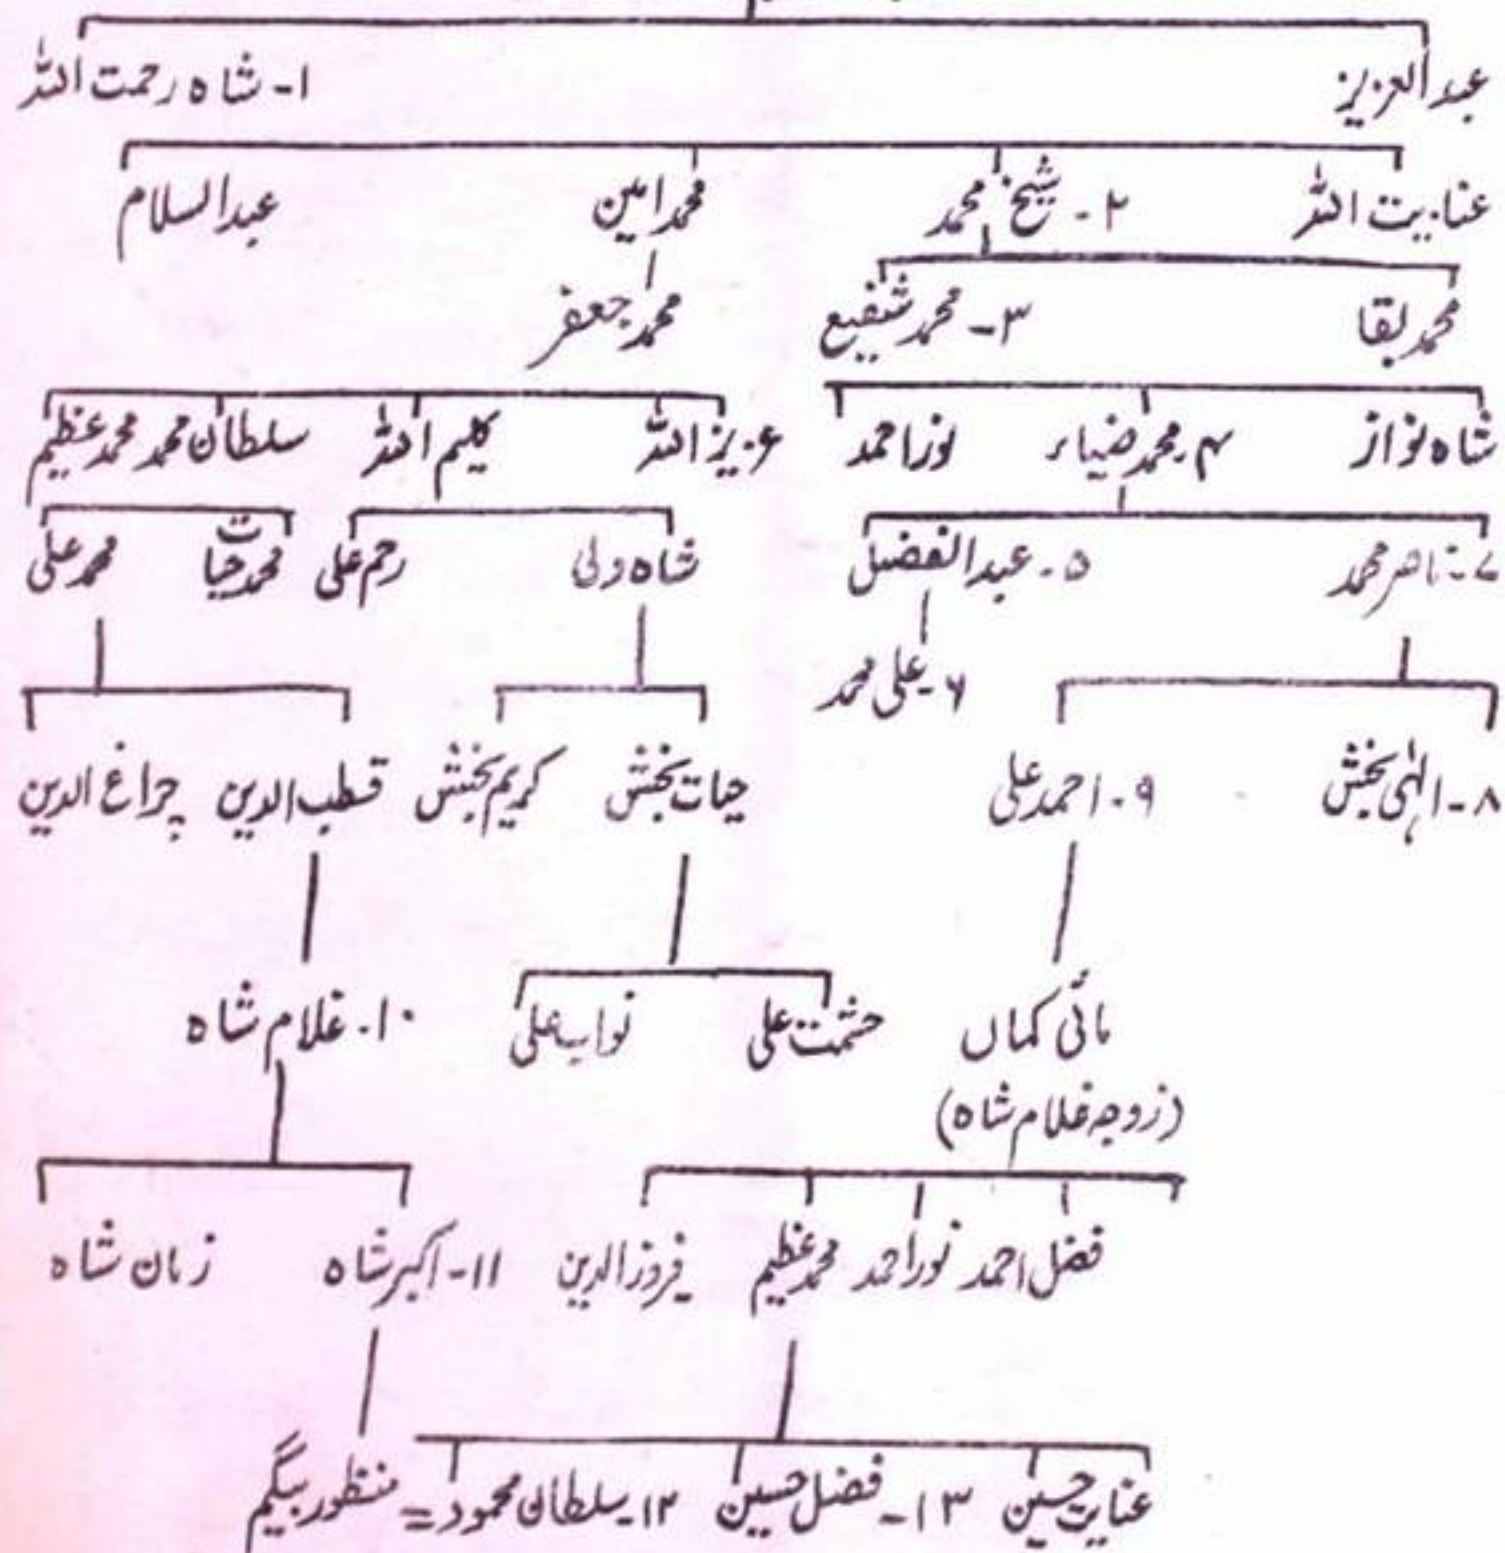 عبدالعزیز ۱- شاہ رحمت اللہ
عنایت اللہ ۲- شیخ محمد محمد امین عبدالسلام
محمد بقا ۳- محمد شفیع محمد جعفر
شاہ نواز ۴- محمد ضیاء نور احمد عزیز اللہ کلیم اللہ سلطان محمد محمد عظیم
۷- ناصر محمد ۵- عبدالفضل شاہ ولی رحم علی محمد حیات محمد علی
۶- علی محمد
۸- الٰہی بخش ۹- احمد علی حیات بخش کریم بخش قطب الدین چراغ الدین
مائی کماں حشمت علی نواب علی ۱۰- غلام شاہ
(زوجہ غلام شاہ)
فضل احمد نور احمد محمد عظیم فیروز الدین ۱۱- اکبر شاہ زمان شاہ
عنایت حسین ۱۳- فضل حسین ۱۲- سلطان محمود = منظور بیگم